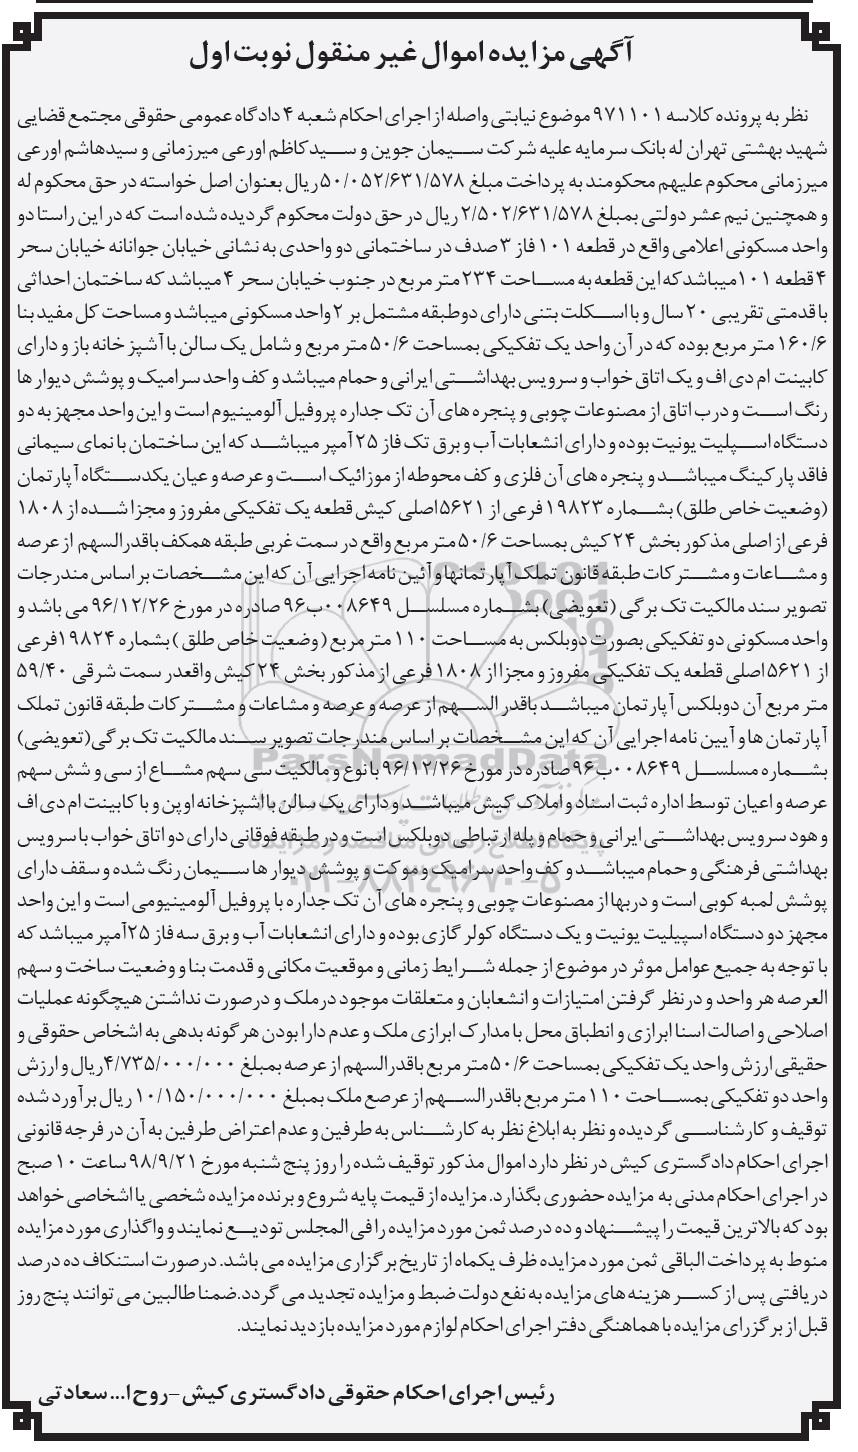 آگهی مزایده اموال غیر منقول نوبت اول
نظر به پرونده کلاسه ۹۷۱۱۰۱ موضوع نیابتی واصله از اجرای احکام شعبه ۴ دادگاه عمومی حقوقی مجتمع قضایی
شهید بهشتی تهران له بانک سرمایه علیه شرکت سیمان جوین و سیدکاظم اورعی میرزمانی و سیدهاشم اورعی
میرزمانی محکوم علیهم محکومند به پرداخت مبلغ ۵۰/۰۵۲/۶۳۱/۵۷۸ ریال بعنوان اصل خواسته در حق محکوم له
و همچنین نیم عشر دولتی بمبلغ ۲/۵۰۲/۶۳۱/۵۷۸ ریال در حق دولت محکوم گردیده شده است که در این راستا دو
واحد مسکونی اعلامی واقع در قطعه ۱۰۱ فاز ۳ صدف در ساختمانی دو واحدی به نشانی خیابان جوانانه خیابان سحر
۴ قطعه ۱۰۱ میباشد که این قطعه به مساحت ۲۳۴ متر مربع در جنوب خیابان سحر ۴ میباشد که ساختمان احداثی
با قدمتی تقریبی ۲۰ سال و با اسکلت بتنی دارای دوطبقه مشتمل بر ۲ واحد مسکونی میباشد و مساحت کل مفید بنا
۱۶۰/۶ متر مربع بوده که در آن واحد یک تفکیکی بمساحت ۵۰/۶ متر مربع و شامل یک سالن با آشپز خانه باز و دارای
کابینت ام دی اف و یک اتاق خواب و سرویس بهداشتی ایرانی و حمام میباشد و کف واحد سرامیک و پوشش دیوار ها
رنگ است و درب اتاق از مصنوعات چوبی و پنجره های آن تک جداره پروفیل آلومینیوم است و این واحد مجهز به دو
دستگاه اسپلیت یونیت بوده و دارای انشعابات آب و برق تک فاز ۲۵ آمپر میباشد که این ساختمان با نمای سیمانی
فاقد پارکینگ میباشد و پنجره های آن فلزی و کف محوطه از موزائیک است و عرصه و عیان یکدستگاه آپارتمان
(وضعیت خاص طلق) بشماره ۱۹۸۲۳ فرعی از ۵۶۲۱ اصلی کیش قطعه یک تفکیکی مفروز و مجزا شده از ۱۸۰۸
فرعی از اصلی مذکور بخش ۲۴ کیش بمساحت ۵۰/۶ متر مربع واقع در سمت غربی طبقه همکف باقدرالسهم از عرصه
و مشاعات و مشترکات طبقه قانون تملک آپارتمانها و آئین نامه اجرایی آن که این مشخصات بر اساس مندرجات
تصویر سند مالکیت تک برگی (تعویضی) بشماره مسلسل ۰۰۸۶۴۹ب۹۶ صادره در مورخ ۹۶/۱۲/۲۶ می باشد و
واحد مسکونی دو تفکیکی بصورت دوبلکس به مساحت ۱۱۰ متر مربع (وضعیت خاص طلق) بشماره ۱۹۸۲۴فرعی
از ۵۶۲۱ اصلی قطعه یک تفکیکی مفروز و مجزا از ۱۸۰۸ فرعی از مذکور بخش ۲۴ کیش واقعدر سمت شرقی ۵۹/۴۰
متر مربع آن دوبلکس آپارتمان میباشد باقدر السهم از عرصه و عرصه و مشاعات و مشترکات طبقه قانون تملک
آپارتمان ها و آیین نامه اجرایی آن که این مشخصات بر اساس مندرجات تصویر سند مالکیت تک برگی(تعویضی)
بشماره مسلسل ۰۰۸۶۴۹ب۹۶صادره در مورخ ۹۶/۱۲/۲۶ با نوع و مالکیت سی سهم مشاع از سی و شش سهم
عرصه و اعیان توسط اداره ثبت اسناد و املاک کیش میباشد و دارای یک سالن با اشپزخانه اوپن و با کابینت ام دی اف
و هود سرویس بهداشتی ایرانی و حمام و پله ارتباطی دوبلکس است و در طبقه فوقانی دارای دو اتاق خواب با سرویس
بهداشتی فرهنگی و حمام میباشد و کف واحد سرامیک و موکت و پوشش دیوار ها سیمان رنگ شده و سقف دارای
پوشش لمبه کوبی است و دربها از مصنوعات چوبی و پنجره های آن تک جداره با پروفیل آلومینیومی است و این واحد
مجهز دو دستگاه اسپیلیت یونیت و یک دستگاه کولر گازی بوده و دارای انشعابات آب و برق سه فاز ۲۵آمپر میباشد که
با توجه به جمیع عوامل موثر در موضوع از جمله شرایط زمانی و موقعیت مکانی و قدمت بنا و وضعیت ساخت و سهم
العرصه هر واحد و در نظر گرفتن امتیازات و انشعابان و متعلقات موجود در ملک و در صورت نداشتن هیچگونه عملیات
اصلاحی و اصالت اسنا ابرازی و انطباق محل با مدارک ابرازی ملک و عدم دارا بودن هرگونه بدهی به اشخاص حقوقی و
حقیقی ارزش واحد یک تفکیکی بمساحت ۵۰/۶ متر مربع باقدرالسهم از عرصه بمبلغ ۴/۷۳۵/۰۰۰/۰۰۰ریال و ارزش
واحد دو تفکیکی بمساحت ۱۱۰ متر مربع باقدرالسهم از عرصع ملک بمبلغ ۱۰/۱۵۰/۰۰۰/۰۰۰ ریال برآورد شده
توقیف و کارشناسی گردیده و نظر به ابلاغ نظر به کارشناس به طرفین و عدم اعتراض طرفین به آن در فرجه قانونی
اجرای احکام دادگستری کیش در نظر دارد اموال مذکور توقیف شده را روز پنج شنبه مورخ ۹۸/۹/۲۱ ساعت ۱۰ صبح
در اجرای احکام مدنی به مزایده حضوری بگذارد. مزایده از قیمت پایه شروع و برنده مزایده شخصی یا اشخاصی خواهد
بود که بالاترین قیمت را پیشنهاد و ده درصد ثمن مورد مزایده را فی المجلس تودیع نمایند و واگذاری مورد مزایده
منوط به پرداخت الباقی ثمن مورد مزایده ظرف یکماه از تاریخ برگزاری مزایده می باشد. در صورت استنکاف ده درصد
دریافتی پس از کسر هزینه های مزایده به نفع دولت ضبط و مزایده تجدید می گردد.ضمنا طالبین می توانند پنج روز
قبل از برگزرای مزایده با هماهنگی دفتر اجرای احکام لوازم مورد مزایده بازدید نمایند.
رئیس اجرای احکام حقوقی دادگستری کیش –روح ا... سعادتی
ParsNamadData
پایگاه اطلاع رسانی مناقصه و مزایده
۰۲۱-۸۸۳۴۹۶۷۰-۵